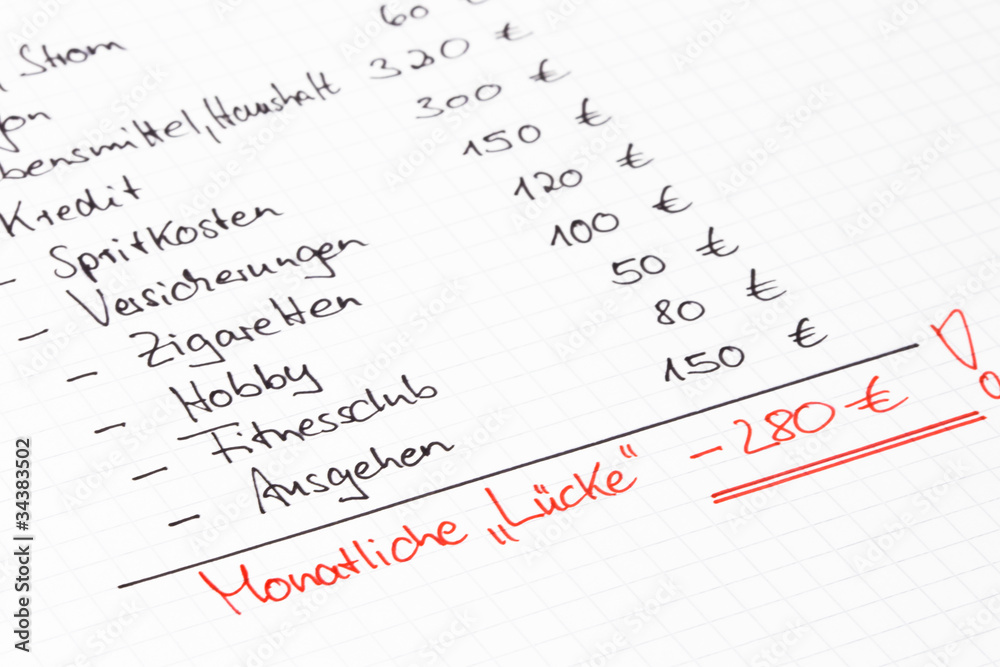 Strom
fon 60
bensmittel, Haushalt 320 €
Kredit 300 €
- Spritkosten 150 €
- Versicherungen 120 €
- Zigaretten 100 €
- Hobby 50 €
- Fitnessclub 80 €
- Ausgehen 150 €
Monatliche „Lücke“ - 280 € !
Adobe Stock | #34383502